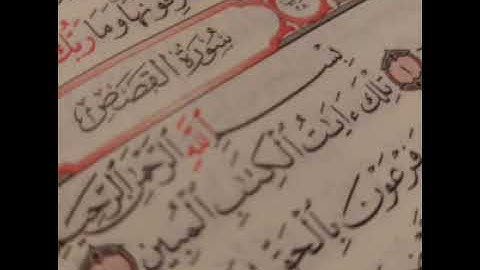 وَمَا رَبُّكَ
سُورَةُ القَصَصِ
بِسْمِ ٱللَّهِ ٱلرَّحْمَٰنِ ٱلرَّحِيمِ
١ تِلْكَ ءَايَٰتُ ٱلْكِتَٰبِ ٱلْمُبِينِ
فِرْعَوْنَ بِٱلْحَقِّ